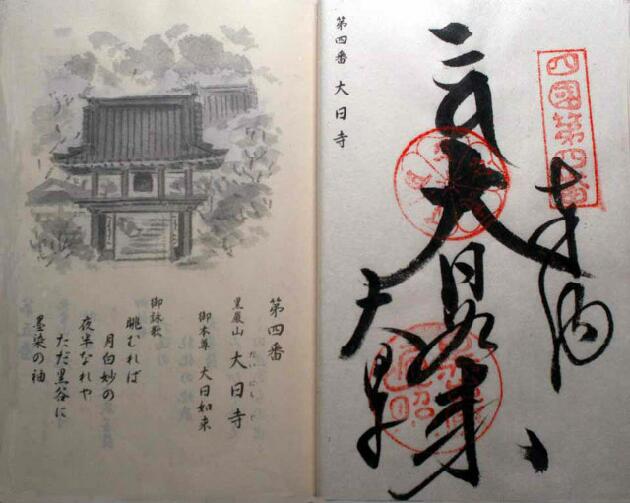 第四番
黒巌山 大日寺
だいにちじ
御本尊 大日如来
御詠歌
眺むれば
月白妙の
夜半なれや
ただ黒谷に
墨染の袖
第四番 大日寺
四國第四番
奉納
大日如来
大日寺